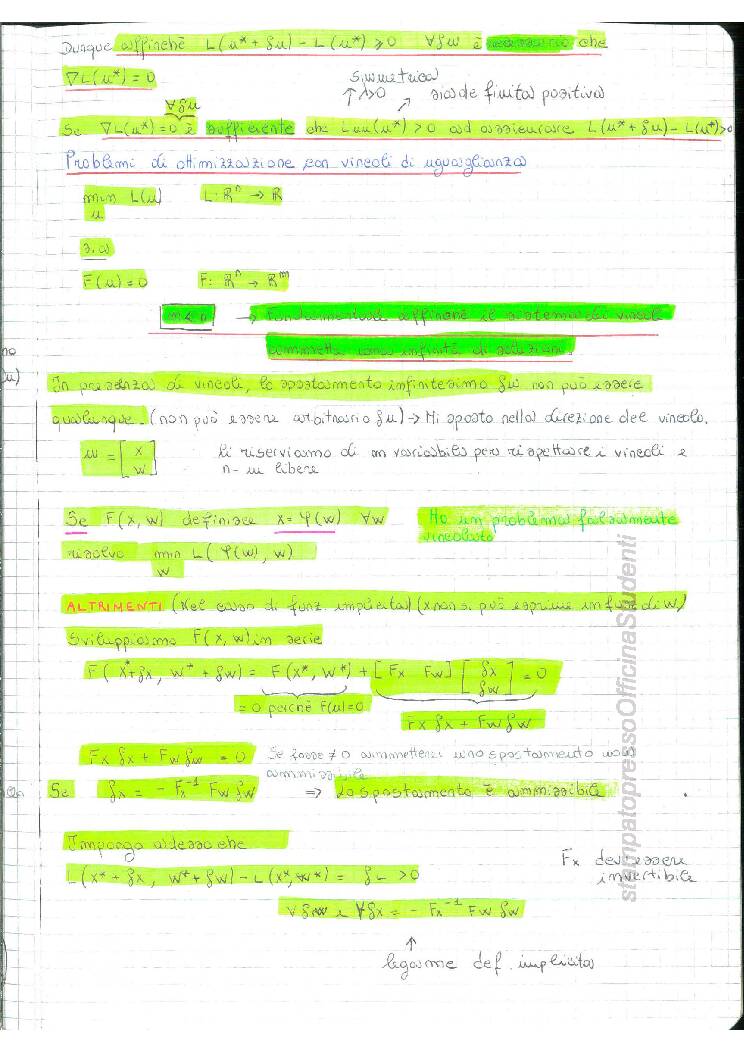 Dunque affinchè L(u*+δu)-L(u*) ≥0 ∀δu è necessario che
∇L(u*)=0
simmetrica
↑ λ>0 ↗ sia definita positiva
∀δu
Se ∇L(u*)=0 è sufficiente che Luu(u*)>0 ad assicurare L(u*+δu)-L(u*)>0
Problemi di ottimizzazione con vincoli di uguaglianza
min L(u) L: ℝⁿ → ℝ
u
s.a
F(u)=0 F: ℝⁿ → ℝᵐ
m<n → Fondamentale affinchè il sistema dei vincoli
ammetta una infinità di soluzioni.
In presenza di vincoli, lo spostamento infinitesimo δu non può essere
qualunque. (non può essere arbitrario δu) → Mi sposto nella direzione del vincolo.
u = [x w] Ci riserviamo di m variabili per rispettare i vincoli e
n-m libere
Se F(x,w) definisce x=φ(w) ∀w Ho un problema falsamente
vincolato
risolvo min L(φ(w), w)
w
ALTRIMENTI (Nel caso di funz. implicita) (x non si può esprime in funz di w)
Sviluppiamo F(x,w) in serie
F(x*+δx, w*+δw) = F(x*,w*) + [Fx Fw] [δx δw] = 0
= 0 perchè F(u)=0
Fx δx + Fw δw
Fx δx + Fw δw = 0 Se fosse ≠0 ammetterei uno spostamento non
ammissibile
Se δx = - Fx⁻¹ Fw δw ⇒ Lo spostamento è ammissibile
Impongo adesso che
L(x*+δx, w*+δw)-L(x*,w*) = δL >0
Fx dev'essere
invertibile
∀δw e ∀δx = - Fx⁻¹ Fw δw
↑
legame def. implicita
stampatopressoOfficinaStudenti